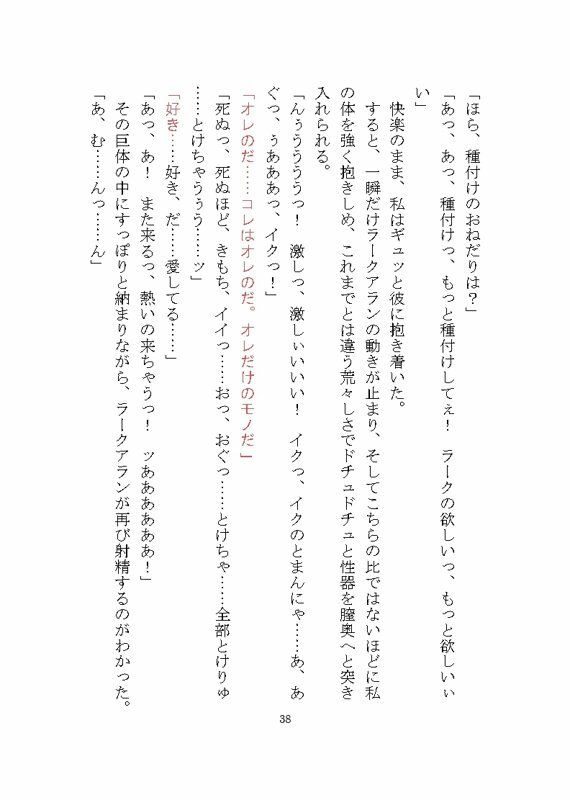 「ほら、種付けのおねだりは？」
「あっ、あっ、種付けっ、もっと種付けしてぇ！　ラークの欲しいっ、もっと欲しいぃ
い」
快楽のまま、私はギュッと彼に抱き着いた。
すると、一瞬だけラークアランの動きが止まり、そしてこちらの比ではないほどに私
の体を強く抱きしめ、これまでとは違う荒々しさでドチュドチュと性器を膣奥へと突き
入れられる。
「んぅうううっ！　激しっ、激しぃいいい！　イクっ、イクのとまんにゃ……あ、あ
ぐっ、ぅあああっ、イクっ！」
「オレのだ……コレはオレのだ。オレだけのモノだ」
「死ぬっ、死ぬほど、きもち、イイっ……おっ、おぐっ……とけちゃ……全部とけりゅ
……とけちゃうぅう……ッ」
「好き……好き、だ……愛してる……」
「あっ、あ！　また来るっ、熱いの来ちゃうっ！　ッああああああ！」
その巨体の中にすっぽりと納まりながら、ラークアランが再び射精するのがわかった。
「あ、む……んっ……ん」
38